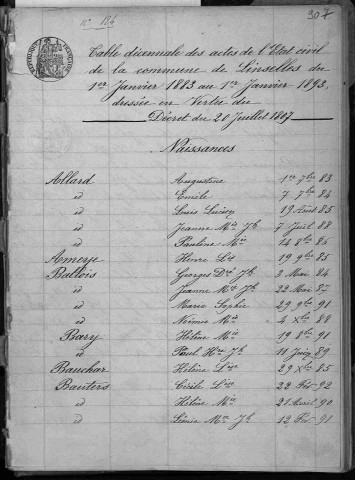 N° 184
307
Table décennale des actes de l'Etat civil
de la commune de Linselles du
1er Janvier 1883 au 1er Janvier 1893,
dressée en Vertu du
Décret du 20 Juillet 1807
Naissances
Allard Augustine 1er 7bre 83
id Emile 7 7bre 84
id Louis Lucien 19 Août 85
id Jeanne Mie Jh 7 Juil 88
id Pauline Mie 14 8bre 86
Henri Lis 19 9bre 85
Ballois Georges Dré Jh 2 Mai 84
id Jeanne Mie Jh 22 Mai
id Marie Sophie 29 9bre 91
id Noémie Mie 4 Xbre 88
Bary Hélène Mie 19 8bre 91
id Paul Hri Jh 11 Juin 89
Bauchar Hélène Lise 29 Xbre 85
Bauters Cécile Lise 22 Fév 92
id Hélène Mie 21 Avril 90
id Mie Jh 12 Fév 91